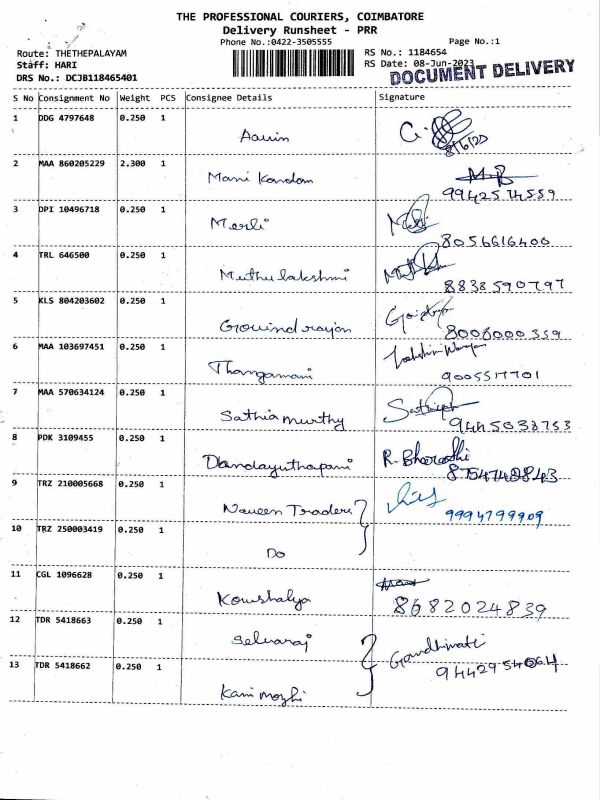 THE PROFESSIONAL COURIERS, COIMBATORE
Delivery Runsheet - PRR
Phone No.:0422-3505555
Page No.:1
Route: THETHEPALAYAM
RS No.: 1184654
Staff: HARI
RS Date: 08-Jun-2023
DRS No.: DCJB118465401
DOCUMENT DELIVERY
S No Consignment No Weight PCS Consignee Details Signature
1 DDG 4797648 0.250 1
2 MAA 860205229 2.300 1
Mani Kandan
9942574559
3 DPI 10496718 0.250 1
Merli
8056616400
4 TRL 646500 0.250 1
Muthulakshmi
8838590797
5 KLS 804203602 0.250 1
Govindrajan
8008000359
6 MAA 103697451 0.250 1
Thangamani
9005517701
7 MAA 570634124 0.250 1
Sathiamurthy
9445038753
8 PDK 3109455 0.250 1
Dandayuthapani R. Bharathi
9 TRZ 210005668 0.250 1
Naveen Traders
9994799909
10 TRZ 250003419 0.250 1
Do
11 CGL 1096628 0.250 1
Kowshalya
8682024839
12 TDR 5418663 0.250 1
Selvaraj Gandhimati
13 TDR 5418662 0.250 1
Kani mozhi